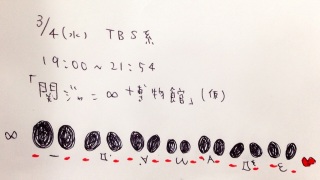 3/4(水) TBS系
19:00~21:54
「関ジャニ∞博物館」(仮)
∞